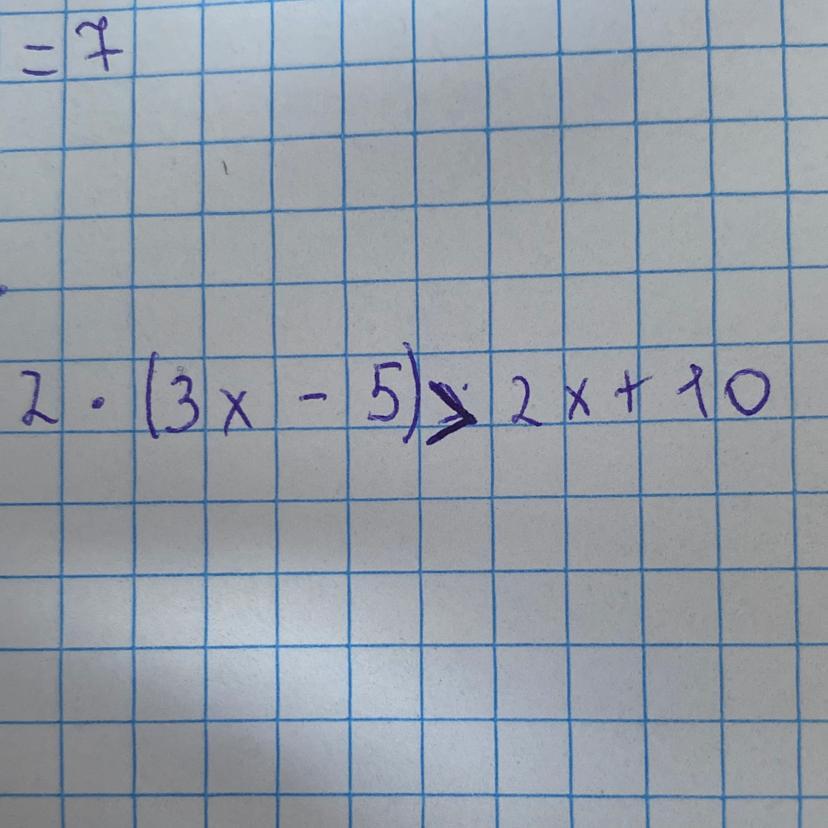 = 7
2 · (3x - 5) > 2x + 10